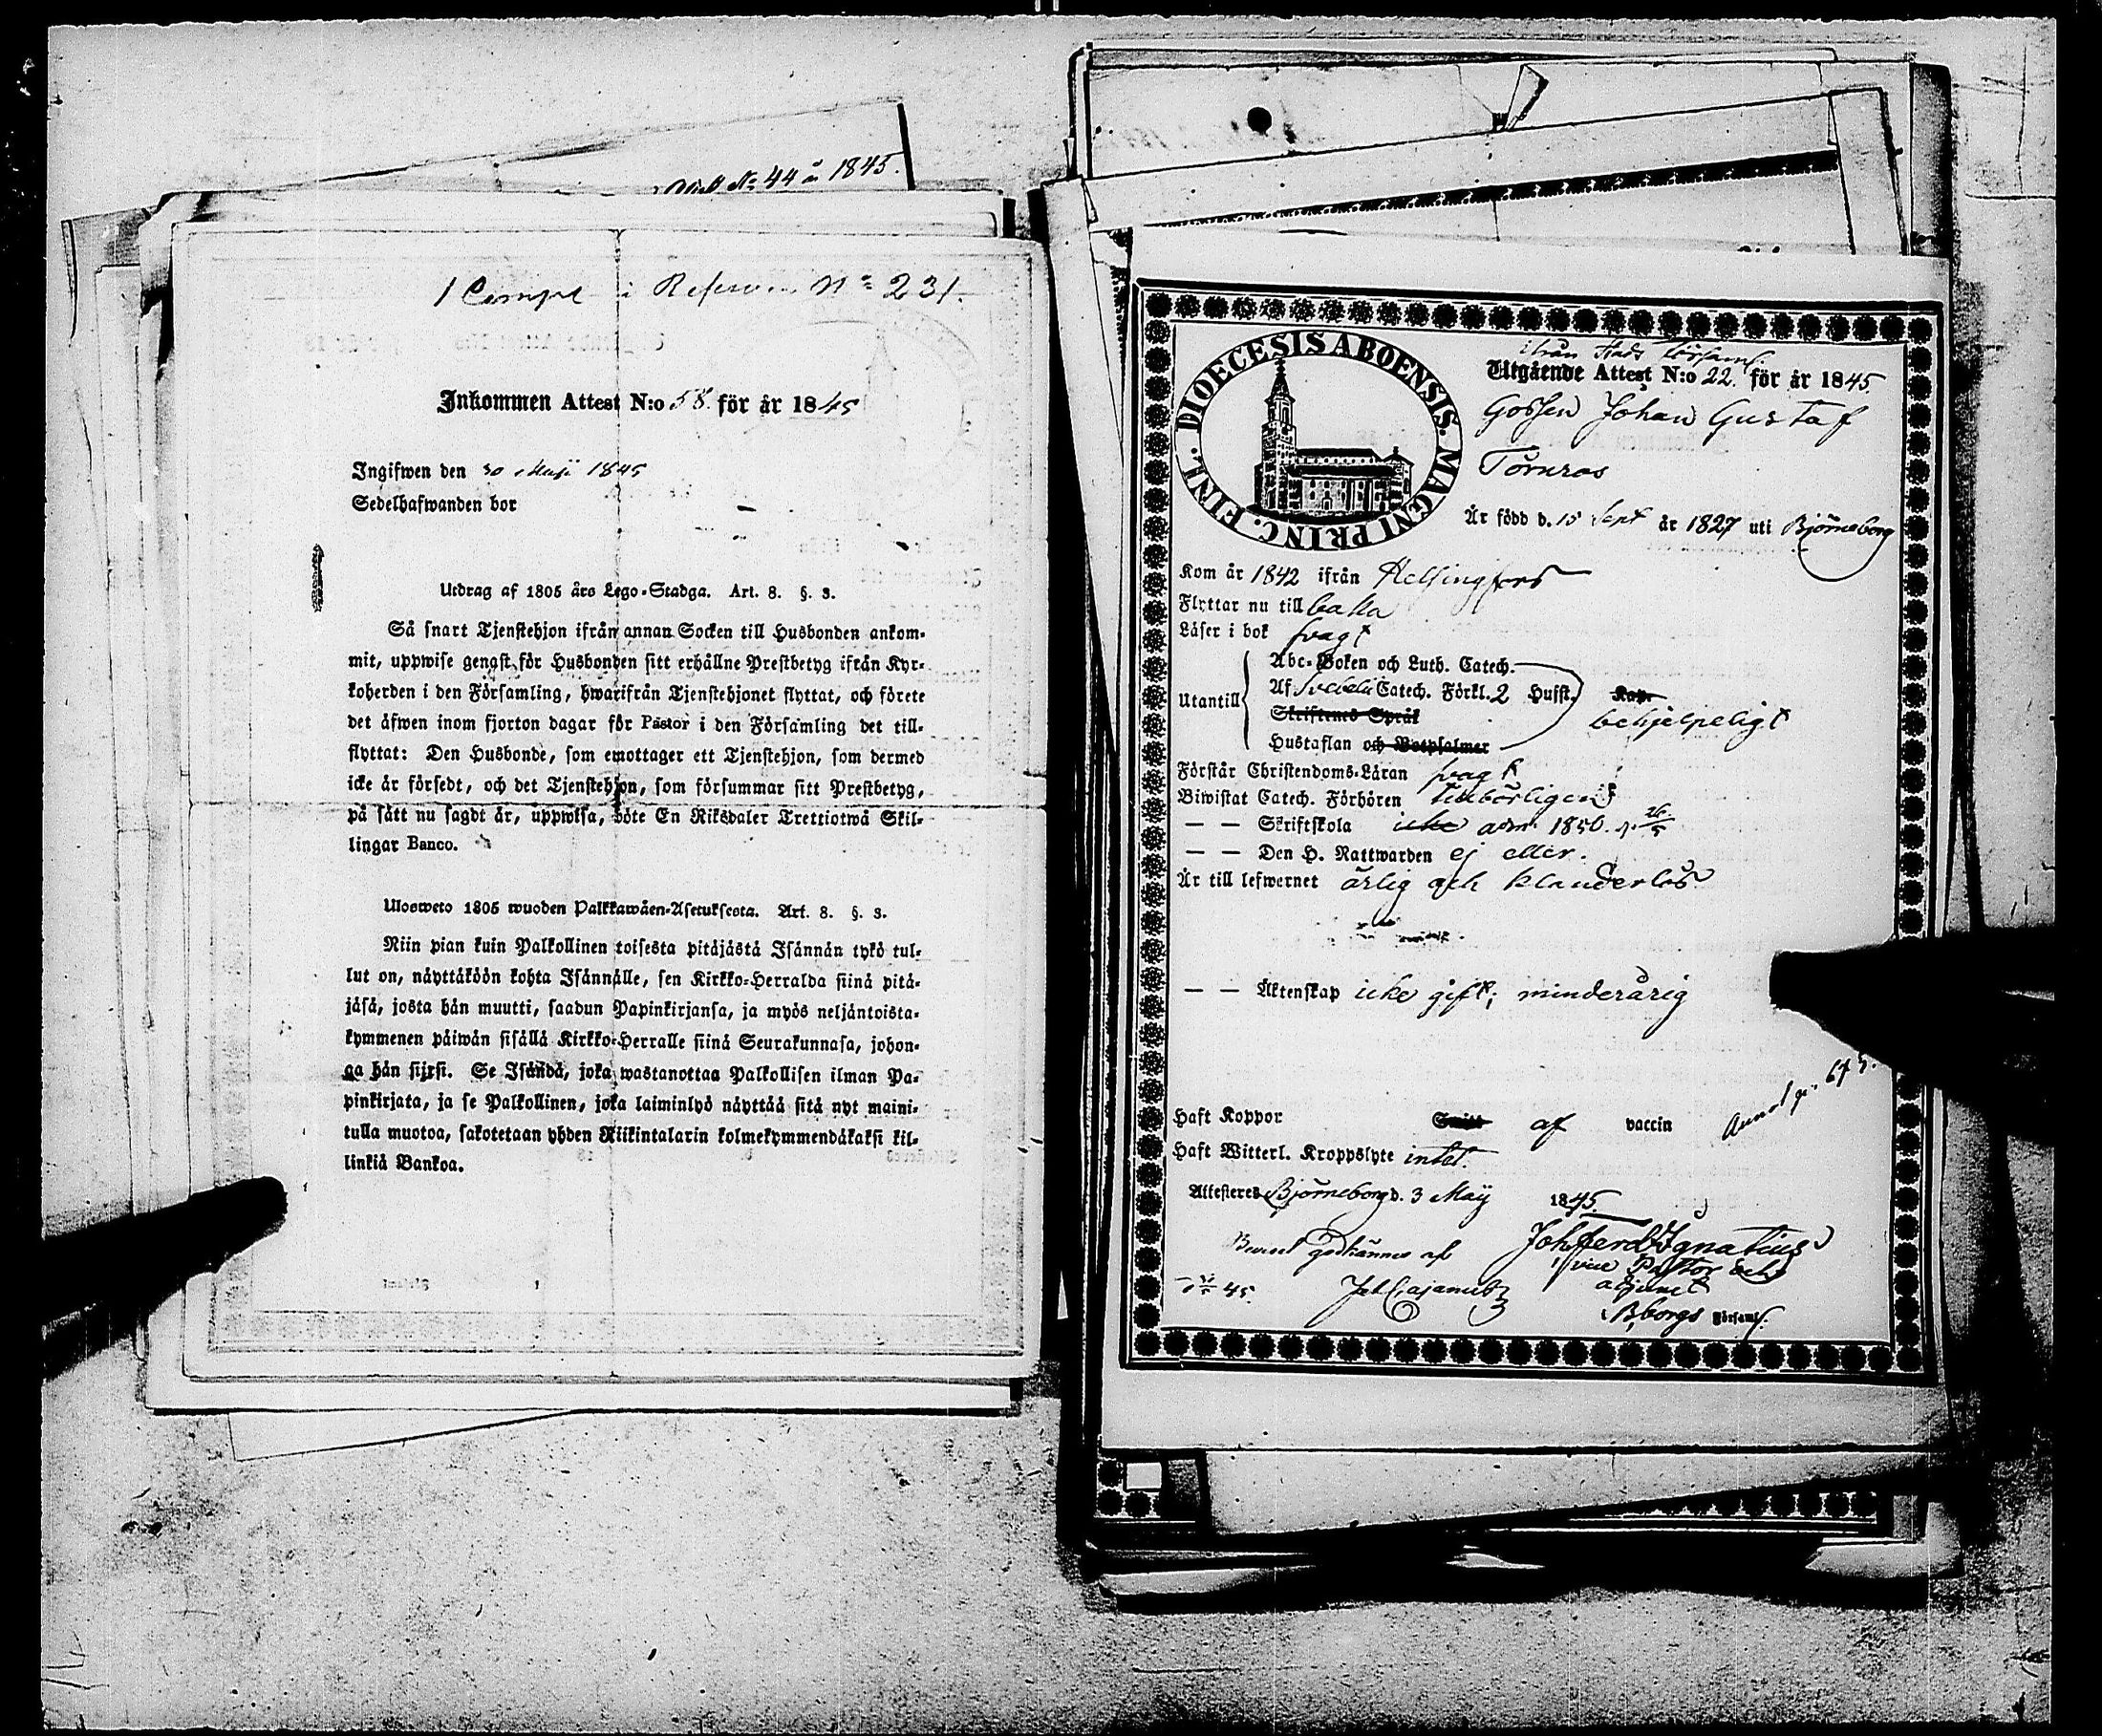 Attest No 44 år 1845.
1 Comp i Reserven No 231.
Inkommen Attest N:o 58. för år 1845
Ingifwen den 30 Maji 1845
Sedelhafwanden bor
Utdrag af 1805 års Lego-Stadga. Art. 8. §. 3.
Så snart Tjenstehjon ifrån annan Socken till Husbonden ankom-
mit, uppwise genast för Husbonden sitt erhållne Prestbetyg ifrån Kyr-
koherden i den Församling, hwarifrån Tjenstehjonet flyttat, och förete
det äfwen inom fjorton dagar för Pastor i den Församling det till-
flyttat: Den Husbonde, som emottager ett Tjenstehjon, som dermed
icke är försedt, och det Tjenstehjon, som försummar sitt Prestbetyg,
på sätt nu sagdt är, uppwisa, böte En Riksdaler Trettiotwå Skil-
lingar Banco.
Ulosweto 1805 wuoden Palkkawäen-Asetuksesta. Art. 8. §. 3.
Niin pian kuin Palkollinen toisesta pitäjästä Isännän tykö tul-
lut on, näyttäköön kohta Isännälle, sen Kirkko-Herralda siinä pitä-
jäsä, josta hän muutti, saadun Papinkirjansa, ja myös neljäntoista-
kymmenen päiwän sisällä Kirkko-Herralle siinä Seurakunnasa, johon-
ga hän siirsi. Se Isändä, joka wastanottaa Palkollisen ilman Pa-
pinkirjata, ja se Palkollinen, joka laiminlyö näyttää sitä nyt maini-
tulla muotoa, sakotetaan yhden Riikintalarin kolmekymmendäkaksi kil-
linkiä Bankoa.
DIOECESIS ABOENSIS. MAGNI PRINC. FINL.
ifrån Stads Församl.
Utgående Attest N:o 22. för år 1845.
Gossen Johan Gustaf
Törnros
Är född d. 15 Sept år 1827 uti Björneborg
Kom år 1842 ifrån Helsingfors
Flyttar nu till baka
Läser i bok svagt
Utantill
Abc-Boken och Luth. Catech.
Af Svebelii Catech. Förkl. 2 Hufst. Kap.
Skriftenes Språk
behjelpeligt
Hustaflan och Botpsalmer
Förstår Christendoms-Läran svagt
Biwistat Catech. Förhören tillbörligen
— — Skriftskola icke adm. 1850. d. 26/5
— — Den H. Nattwarden ej eller.
Är till lefwernet ärlig och klanderlös
— — Äktenskap icke gift; minderårig
Haft Koppor Smitt af vaccin
Annot. p. 675.
Haft Witterl. Kroppslyte intet.
Attesteres Björneborg d. 3 Maij 1845.
Joh Ferd Ignatius
vice Pastor och
adjunct
B,borgs Församl.
godkännes af
45. Joh Cajanus